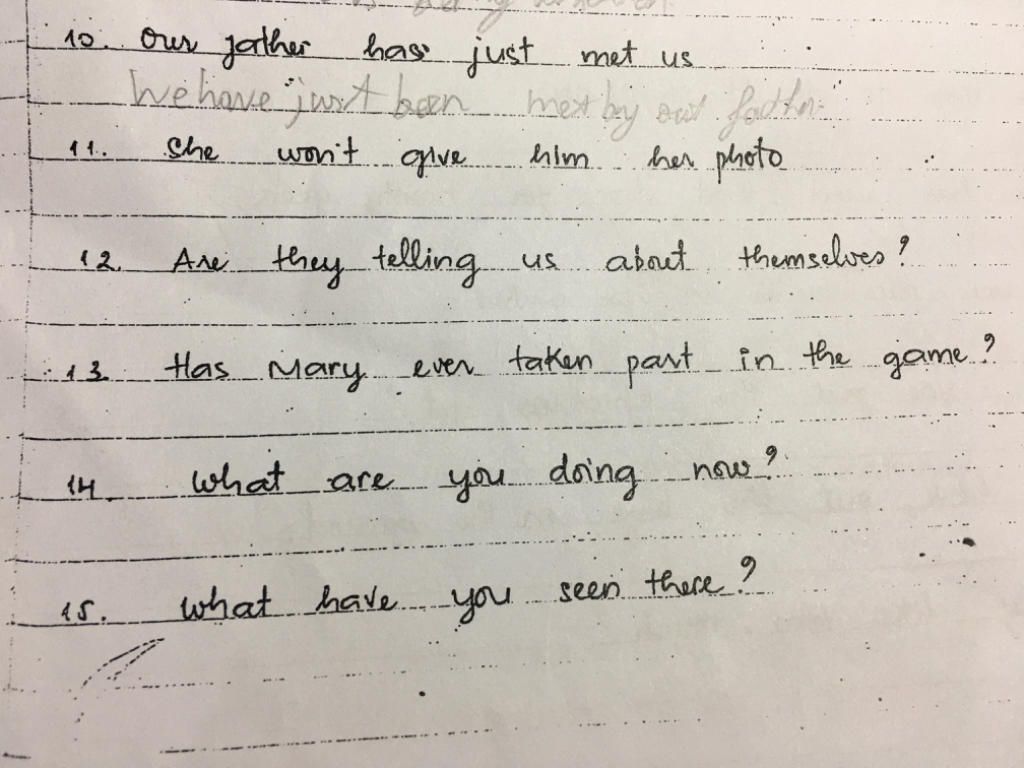 10. Our father has just met us
We have just been met by our father
11. She won't give him her photo
12. Are they telling us about themselves?
13. Has Mary ever taken part in the game?
14. What are you doing now?
15. What have you seen there?